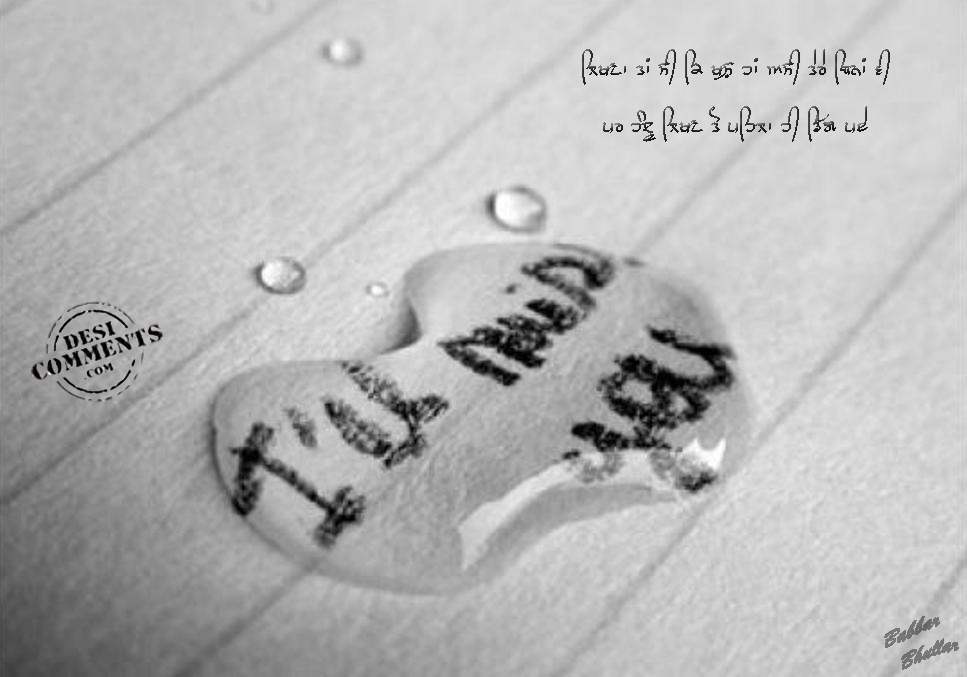 ਲਿਖਣਾ ਤਾਂ ਸੀ ਕਿ ਖੁਸ਼ ਹਾਂ ਅਸੀ ਤੇਰੇ ਬਿਨਾਂ ਵੀ
ਪਰ ਹੰਝੂ ਲਿਖਣ ਤੋ ਪਹਿਲਾ ਹੀ ਡਿੱਗ ਪਏ
I'LL
YOU
DESI
COMMENTS
.COM
Babbar
Bhullar